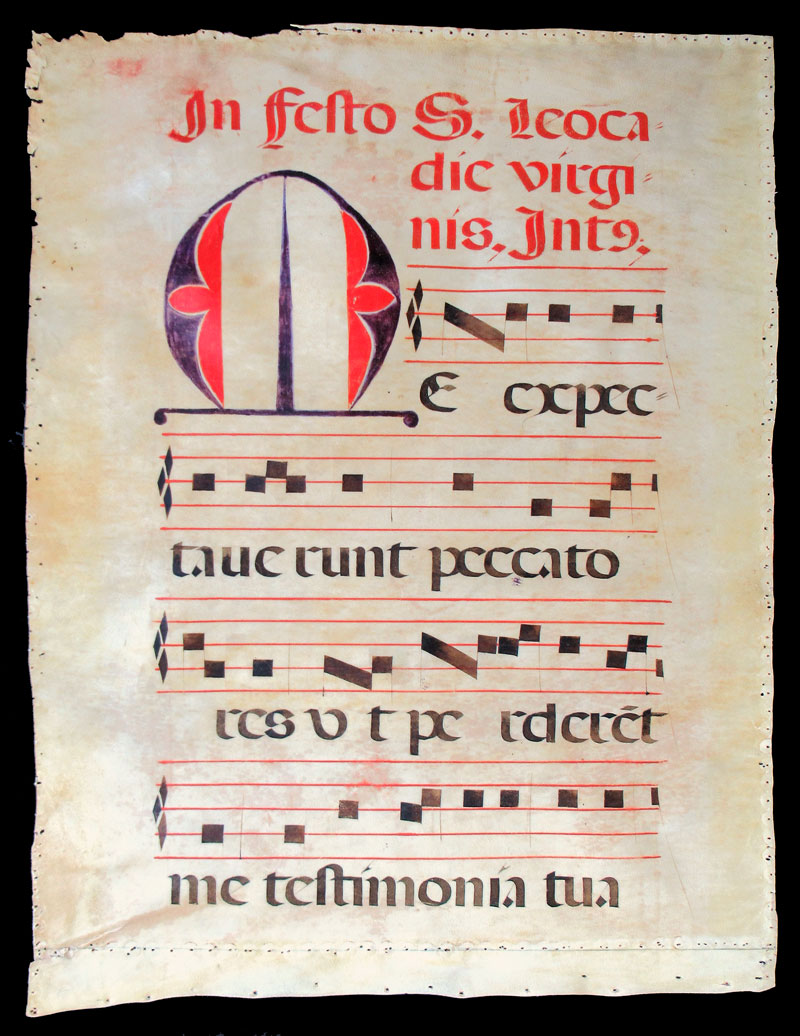 In festo S. Leoca-
die virgi-
nis. Int9.
ME expec-
taue runt peccato
res v t pe rderēt
me testimonia tua